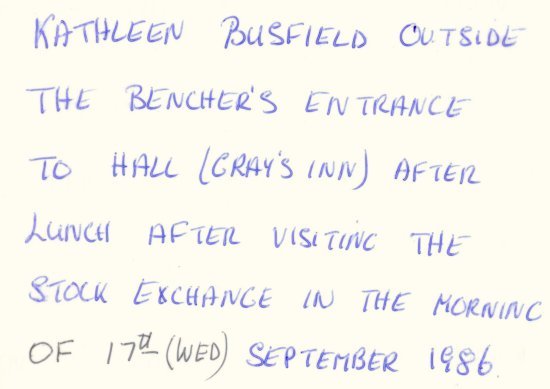 KATHLEEN BUSFIELD OUTSIDE
THE BENCHER'S ENTRANCE
TO HALL (GRAY'S INN) AFTER
LUNCH AFTER VISITING THE
STOCK EXCHANGE IN THE MORNING
OF 17TH (WED) SEPTEMBER 1986